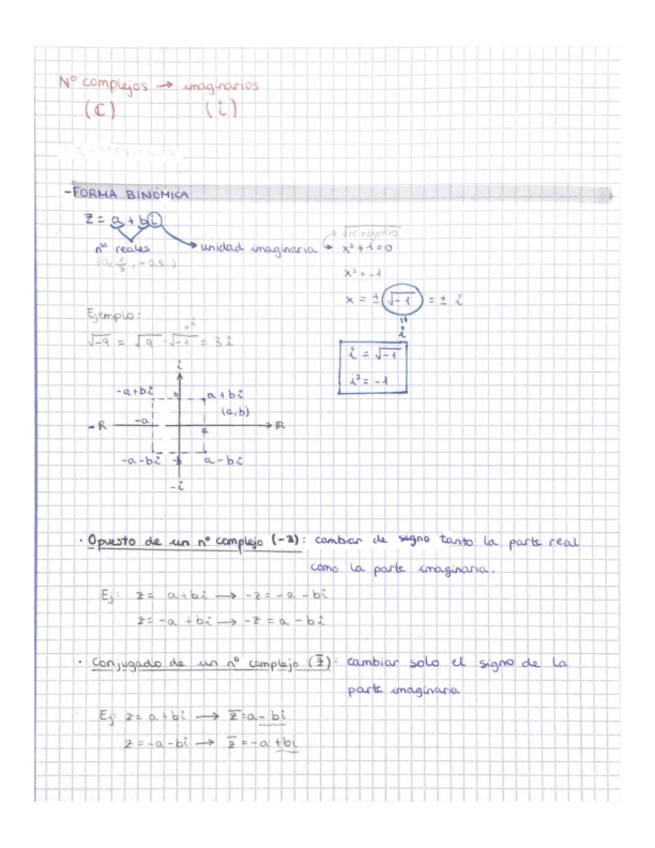 Nº complejos → imaginarios
(ℂ) (i)
- FORMA BINÓMICA
z = a + bi
nos reales → unidad imaginaria → x² + 1 = 0
x² = -1
x = ± √-1 = ± i
" i
Ejemplo:
√-9 = √9 · √-1 = 3i
i = √-1
i² = -1
i
-a+bi a+bi
(a,b)
-ℝ -a a ℝ
-a-bi a-bi
-i
· Opuesto de un nº complejo (-z): cambiar de signo tanto la parte real
como la parte imaginaria.
Ej: z = a+bi → -z = -a -bi
z = -a +bi → -z = a - bi
· Conjugado de un nº complejo (z̄): cambiar solo el signo de la
parte imaginaria
Ej: z = a+bi → z̄ = a - bi
z = -a - bi → z̄ = -a + bi